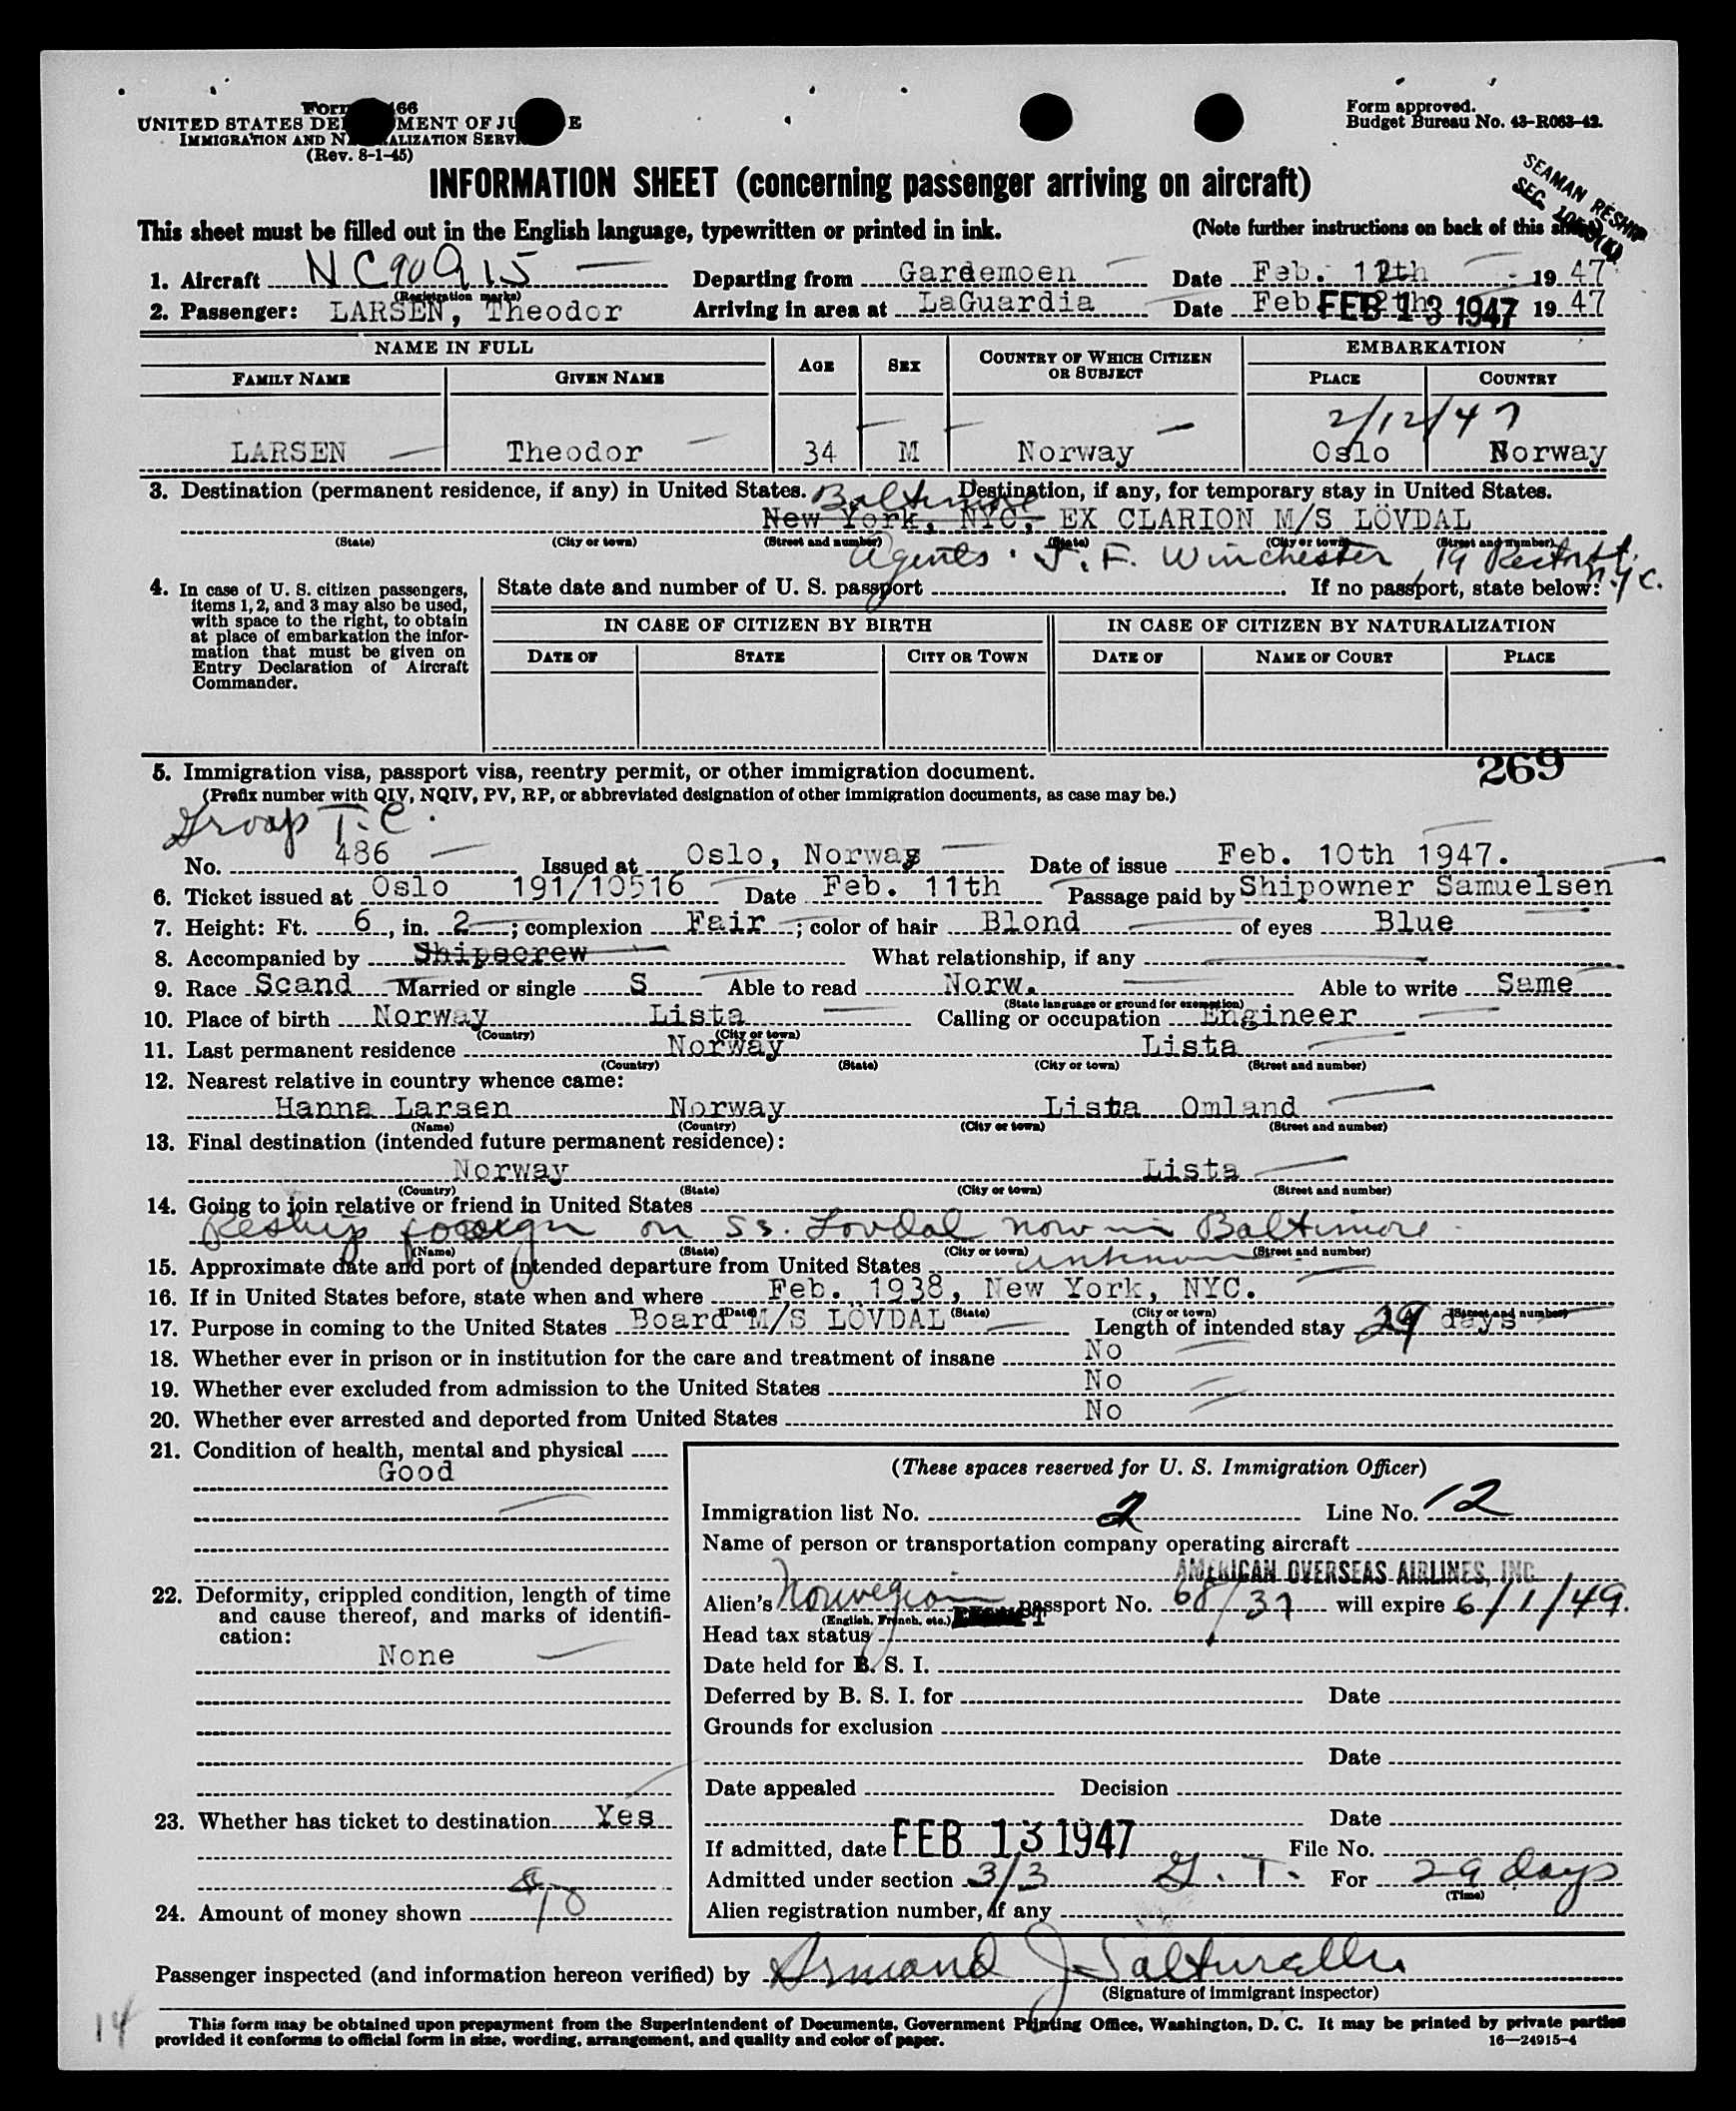 Form 466
UNITED STATES DEPARTMENT OF JUSTICE
IMMIGRATION AND NATURALIZATION SERVICE
(Rev. 8-1-45)
Form approved.
Budget Bureau No. 43-R063-42.
INFORMATION SHEET (concerning passenger arriving on aircraft)
SEAMAN RESHIP
SEC.
This sheet must be filled out in the English language, typewritten or printed in ink.
(Note further instructions on back of this sheet)
1. Aircraft NC90915 Departing from Gardemoen Date Feb. 12th 1947
(Registration marks)
2. Passenger: LARSEN, Theodor Arriving in area at LaGuardia Date Feb. 12th FEB 13 1947 1947
NAME IN FULL AGE SEX COUNTRY OF WHICH CITIZEN OR SUBJECT EMBARKATION
FAMILY NAME GIVEN NAME PLACE COUNTRY
2/12/47
LARSEN Theodor 34 M Norway Oslo Norway
3. Destination (permanent residence, if any) in United States. Destination, if any, for temporary stay in United States.
Baltimore
New York, NYC, EX CLARION M/S LÖVDAL
(State) (City or town) (Street and number) (State) (City or town) (Street and number)
Agents. J. F. Winchester 19 Rector St. N.Y.C.
4. In case of U. S. citizen passengers, items 1, 2, and 3 may also be used, with space to the right, to obtain at place of embarkation the information that must be given on Entry Declaration of Aircraft Commander.
State date and number of U. S. passport If no passport, state below:
IN CASE OF CITIZEN BY BIRTH IN CASE OF CITIZEN BY NATURALIZATION
DATE OF STATE CITY OR TOWN DATE OF NAME OF COURT PLACE
269
5. Immigration visa, passport visa, reentry permit, or other immigration document.
(Prefix number with QIV, NQIV, PV, RP, or abbreviated designation of other immigration documents, as case may be.)
Group T.C.
No. 486 Issued at Oslo, Norway Date of issue Feb. 10th 1947.
6. Ticket issued at Oslo 191/10516 Date Feb. 11th Passage paid by Shipowner Samuelsen
7. Height: Ft. 6, in. 2; complexion Fair; color of hair Blond of eyes Blue
8. Accompanied by Shipscrew What relationship, if any
9. Race Scand Married or single S Able to read Norw. Able to write Same
(State language or ground for exemption)
10. Place of birth Norway Lista Calling or occupation Engineer
(Country) (City or town)
11. Last permanent residence Norway Lista
(Country) (State) (City or town) (Street and number)
12. Nearest relative in country whence came:
Hanna Larsen Norway Lista Omland
(Name) (Country) (City or town) (Street and number)
13. Final destination (intended future permanent residence):
Norway Lista
(Country) (State) (City or town) (Street and number)
14. Going to join relative or friend in United States
Reship foreign on SS. Lovdal now in Baltimore
(Name) (State) (City or town) (Street and number)
15. Approximate date and port of intended departure from United States unknown
16. If in United States before, state when and where Feb. 1938, New York, NYC.
(Date) (State) (City or town) (Street and number)
17. Purpose in coming to the United States Board M/S LÖVDAL Length of intended stay 29 days
18. Whether ever in prison or in institution for the care and treatment of insane No
19. Whether ever excluded from admission to the United States No
20. Whether ever arrested and deported from United States No
21. Condition of health, mental and physical
Good
22. Deformity, crippled condition, length of time and cause thereof, and marks of identification:
None
23. Whether has ticket to destination Yes
24. Amount of money shown
(These spaces reserved for U. S. Immigration Officer)
Immigration list No. 2 Line No. 12
Name of person or transportation company operating aircraft
AMERICAN OVERSEAS AIRLINES, INC.
Alien's Norwegian passport No. 68/37 will expire 6/1/49.
(English, French, etc.)
Head tax status
Date held for B. S. I.
Deferred by B. S. I. for Date
Grounds for exclusion
Date
Date appealed Decision
Date
If admitted, date FEB 13 1947 File No.
Admitted under section 3/3 G.T. For 29 days
(Time)
Alien registration number, if any
Passenger inspected (and information hereon verified) by Armand J. Salturelli
(Signature of immigrant inspector)
14
This form may be obtained upon prepayment from the Superintendent of Documents, Government Printing Office, Washington, D. C. It may be printed by private parties
provided it conforms to official form in size, wording, arrangement, and quality and color of paper.
16—24915-4